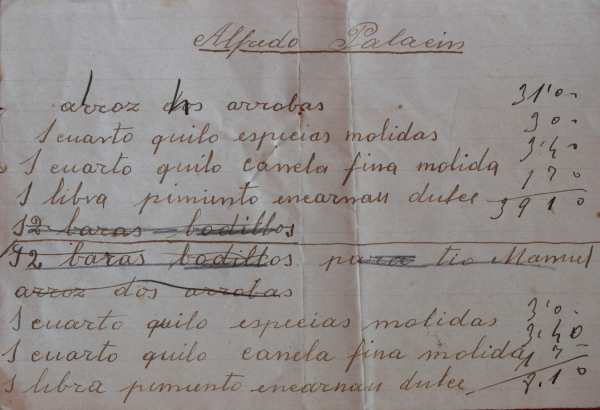 Alfredo Palacin
arroz dos arrobas 31'0-
1 cuanto quilo especias molidas 30-
1 cuarto quilo canela fina molida 3'40
1 libra pimiento encarnau dulce 170
3910
12 baras bodillos
12 baras bodillos para tio Manuel
arroz dos arrobas
1 cuarto quilo especias molidas 3'0-
1 cuarto quilo canela fina molida 3.40
1 libra pimiento encarnau dulce 170
8.10